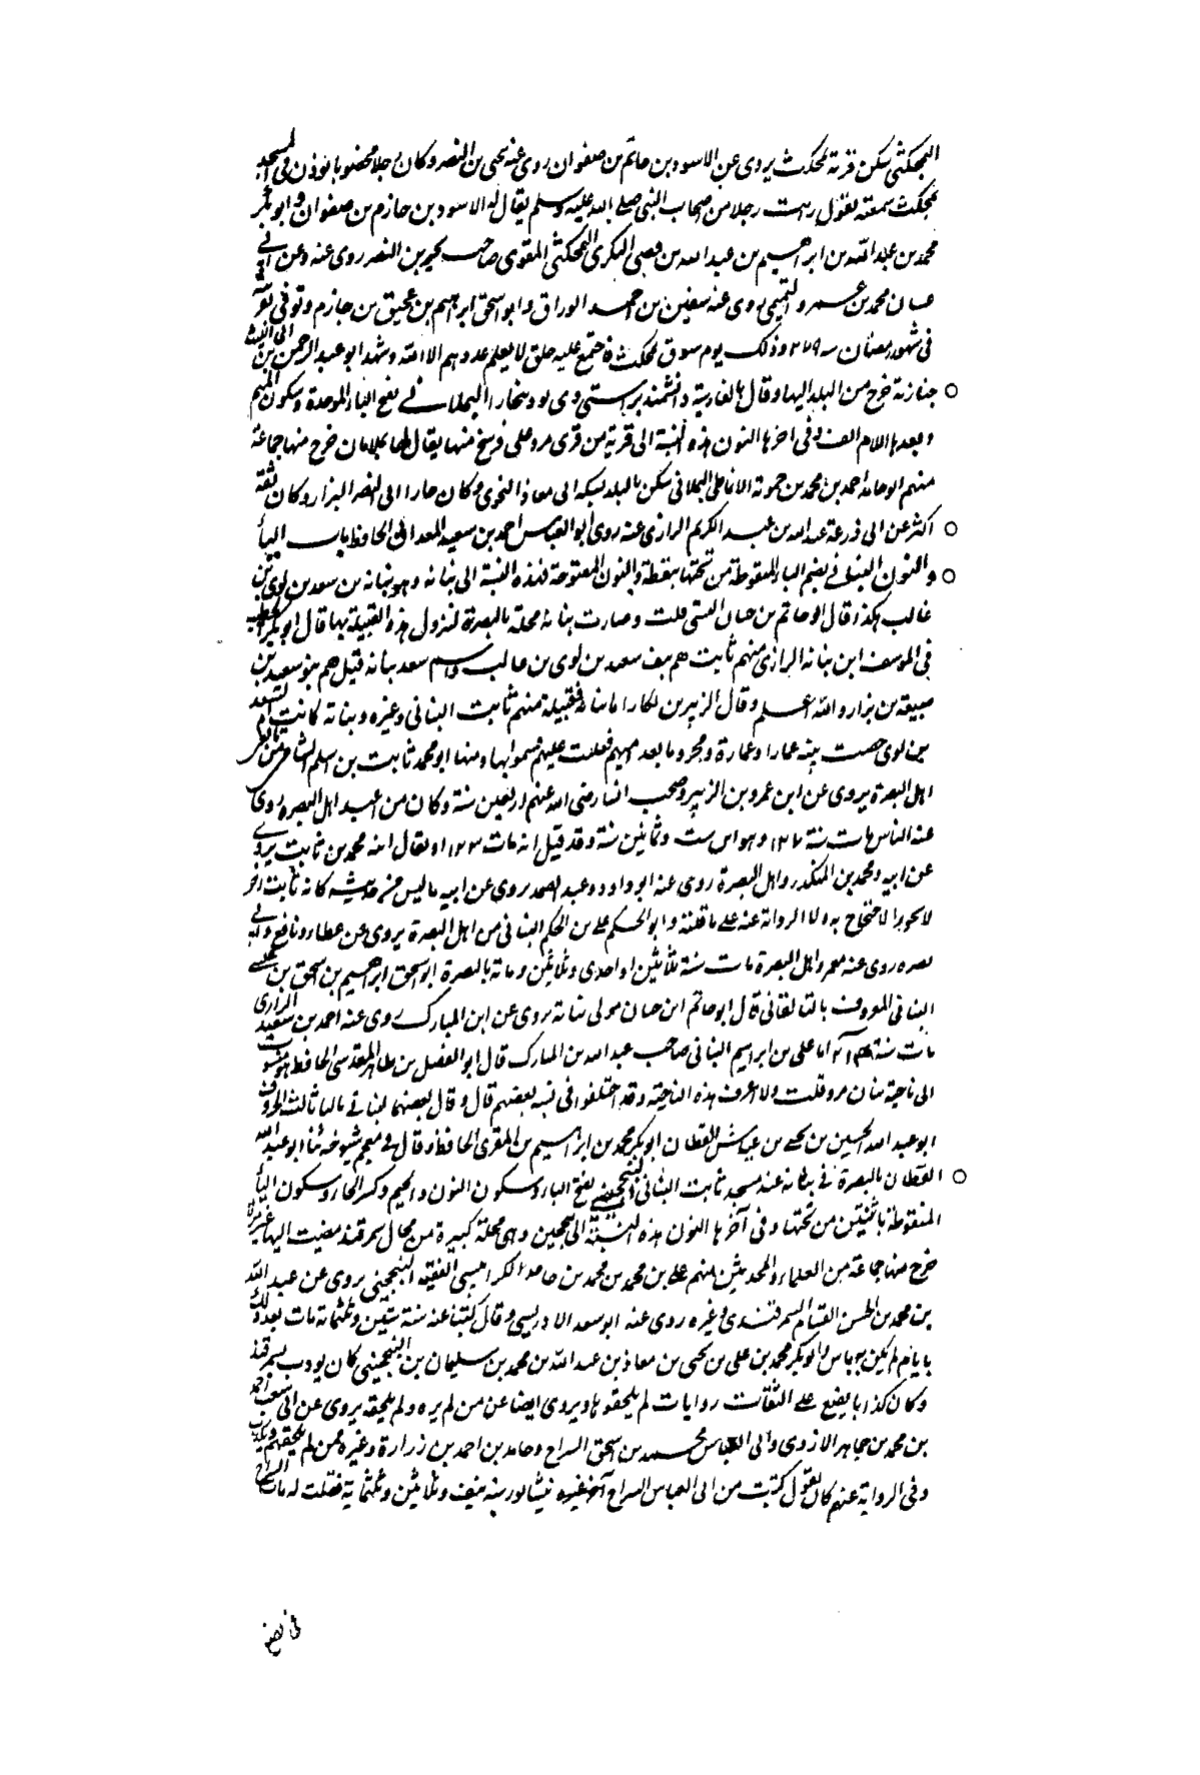 البمجكثي سكن قرية بمجكث يروى عن الاسود بن حاتم من صفوان روى عنه يحيى بن النضر وكان رجلا مخضوبا يوذن فى المسجد
بمجكث سمعته يقول رايت رجلا من اصحاب النبى صلى الله عليه وسلم يقال له الاسود بن حازم بن صفوان وابو بكر
محمد بن عبد الله بن ابراهيم بن عبد الله بن البكرى البمجكثى المقرى صاحب بجير بن النضر روى عنه وعن ابى
محمد بن عمرو التميمى روى عنه سفين بن احمد الوراق وابو اسحق ابرهيم بن عجيق بن حازم وتوفى
فى شهر رمضان سه ٢٧٩ وذلك يوم سوق بمجكث فاجتمع عليه خلق لا يعلم عددهم الا الله وشهد ابو عبد الرحمن بن ابى الليث
جنازته خرج من البلد اليها وقال بالفارسية دانشمند براستى وى بود ببخارا البملانى بفتح الباء الموحدة وسكون الميم
وبعدها اللام الف وفى اخرها النون هذه النسبة الى قرية من قرى مرو على فرسخ منها يقال لها بملان خرج منها جماعة
منهم ابو حامد احمد بن محمد بن حمويه الانماطى البملانى سكن بالبلد سكة ابى معاذ النحوى وكان جارا ابى النضر البزار وكان ثقة
اكثر عن ابى زرعة عبد الله بن عبد الكريم الرازى عنه روى ابو العباس احمد بن سعيد المعدانى الحافظ باب الباء
والنون البنانى بضم الباء المنقوطة من تحتها بنقطة والنون المفتوحة هذه النسبة الى بنانه وهو بنانه بن سعد بن لوى بن
غالب هكذا قال ابو حاتم بن حبان البستى قلت وصارت بنانه محلة بالبصرة لنزول هذه القبيلة بها قال ابو بكر الخطيب
فى الموتنف ابن بنانه الرازى منهم ثابت هم بنو سعد بن لوى بن غالب واسم سعد بنانه قيل هم بنو سعد بن
ضبيعة بن نزار والله اعلم وقال الزبير بن بكار اما بنانه فقبيلة منهم ثابت البنانى وغيره وبنانه كانت امة لسعد
بن لوى حضنت بنيه عمارا وعمارة ومجزوما بعد امهم فغلبت عليهم فسموا بها ومنها ابو محمد ثابت بن اسلم البنانى من
اهل البصرة يروى عن ابن عمر وبن الزبير وصحب انسا رضى الله عنهم اربعين سنة وكان من اعبد اهل البصرة روى
عنه الناس مات سنة ١٢٧ وهو ابن ست وثمانين سنة وقد قيل انه مات ١٢٣ ويقال ابنه محمد بن ثابت يروى
عن ابيه ومحمد بن المنكدر واهل البصرة روى عنه ابو داود وعبد الصمد يروى عن ابيه ما ليس من حديثه كانه ثابت اخر
لا يجوز الاحتجاج به ولا الرواية عنه على ما قلته وابو الحكم على بن الحكم البنانى من اهل البصرة يروى عن عطاء ونافع وابى
نضره روى عنه معمر واهل البصرة مات سنة ثلاثين او احدى وثلاثين وماية بالبصرة ابو اسحق ابراهيم بن اسحق بن عيسى
البنانى المعروف بالطالقانى قال ابو حاتم ابن حبان مولى بنانة يروى عن ابن المبارك روى عنه احمد بن سعيد الرازى
مات سنة اما على بن ابراهيم البنانى صاحب عبد الله بن المبارك قال ابو الفضل بن طاهر المقدسى الحافظ هو منسوب
الى ناحية بنان مرو قلت ولا اعرف هذه الناحية وقد اختلفوا فى نسبه بعضهم قال وقال بعضهم البنانى بالباء ثالث الحروف
ابو عبد الله الحسين بن يحيى بن عياش القطان ابو بكر محمد بن ابراهيم بن المقرى الحافظ وقال فى معجم شيوخه ثنا ابو عبد الله
القطان بالبصرة فى بنانه عند مسجد ثابت البنانى البنجخينى بفتح الباء وسكون النون والجيم وكسر الخاء وسكون الياء
المنقوطة باثنتين من تحتها وفى آخرها النون هذه النسبة الى بنجخين وهى محلة كبيرة من محال سمرقند مضيت اليها غير مرة
خرج منها جماعة من العلماء والمحدثين منهم على بن محمد بن محمد بن حامد الكرابيسى الفقيه البنجخينى يروى عن عبد الله
بن محمد بن الحسن القسام السمرقندى وغيره روى عنه ابو سعد الادريسى وقال كتبنا عنه سنة ستين وثلثمائة مات بعد ذلك
بايام لم يكن به باس وابو بكر محمد بن على بن يحيى بن معاذ بن عبد الله بن محمد بن سليمان بن البنجخينى كان يودب بسمرقند
وكان كذابا يضع على الثقات روايات لم يلحقوها ويروى ايضا عن من لم يره ولم يلحقه يروى عن ابى شعيب احمد
بن محمد بن جابر الازدى وابى العباس محمد بن اسحق السراج وحامد بن احمد بن زرارة وغيره ممن لم يلحقهم ويكذب
وفى الرواية عنهم كان يقول كتبت من ابى العباس السراج آخر غيره نيشابور سنه نيف وثلاثين وثلثماية فقلت له مات السراج